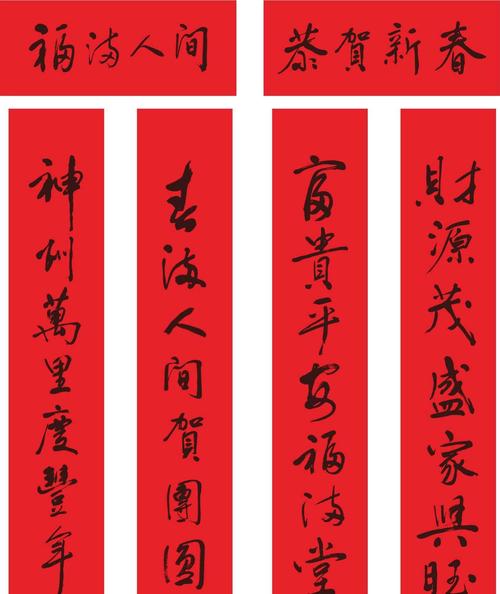 福满人间
恭賀新春
財源茂盛家興旺
富貴平安福满堂
春满人间賀團圆
神州萬里慶豐年